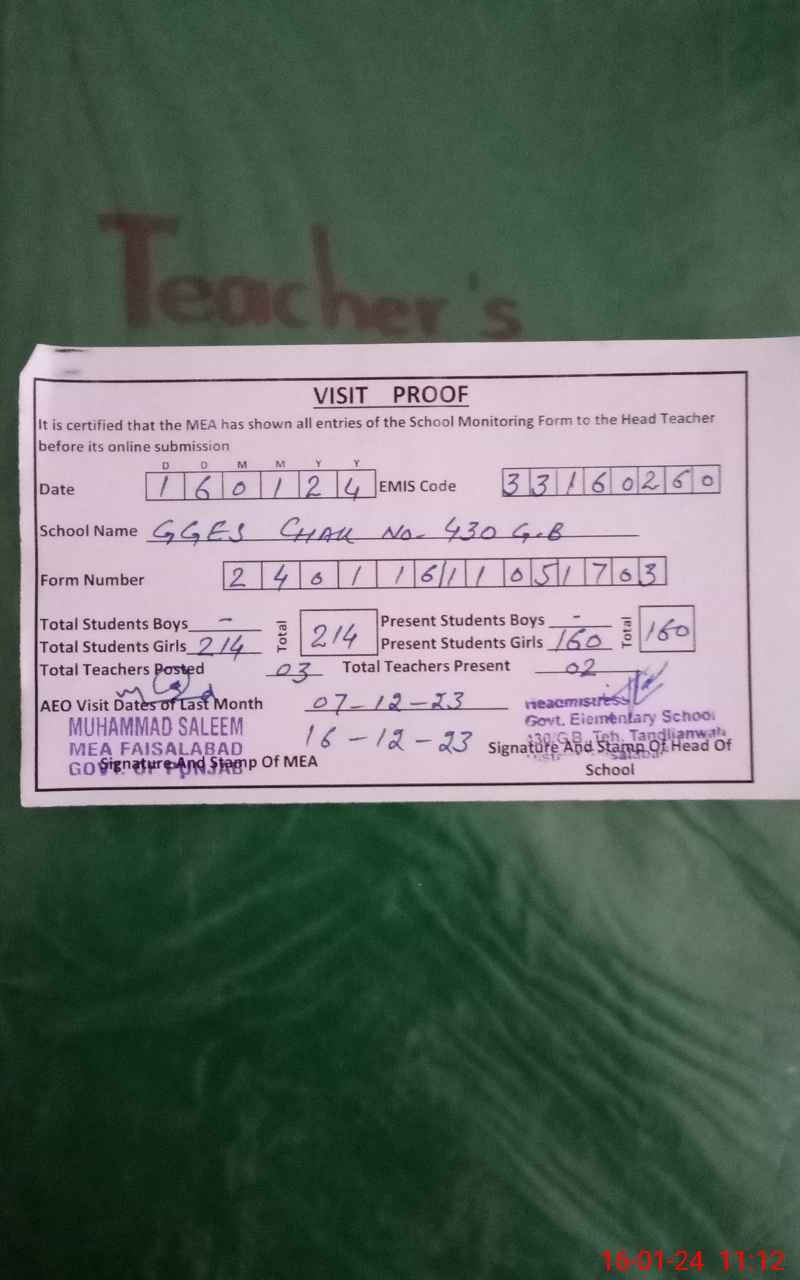 Teacher's
VISIT PROOF
It is certified that the MEA has shown all entries of the School Monitoring Form to the Head Teacher
before its online submission
D D M M Y Y
Date 1 6 0 1 2 4 EMIS Code 3 3 1 6 0 2 6 0
School Name GGES CHAK No. 430 G.B
Form Number 2 4 0 1 1 6 1 1 0 5 1 7 0 3
Total Students Boys - Total 214 Present Students Boys - Total 160
Total Students Girls 214 Present Students Girls 160
Total Teachers Posted 03 Total Teachers Present 02
AEO Visit Dates of Last Month 07-12-23
16-12-23
MUHAMMAD SALEEM
MEA FAISALABAD
GOVT. OF PUNJAB
Signature And Stamp Of MEA
Headmistress
Govt. Elementary School
430 G.B. Teh. Tandlianwala
Signature And Stamp Of Head Of
School
16-01-24 11:12